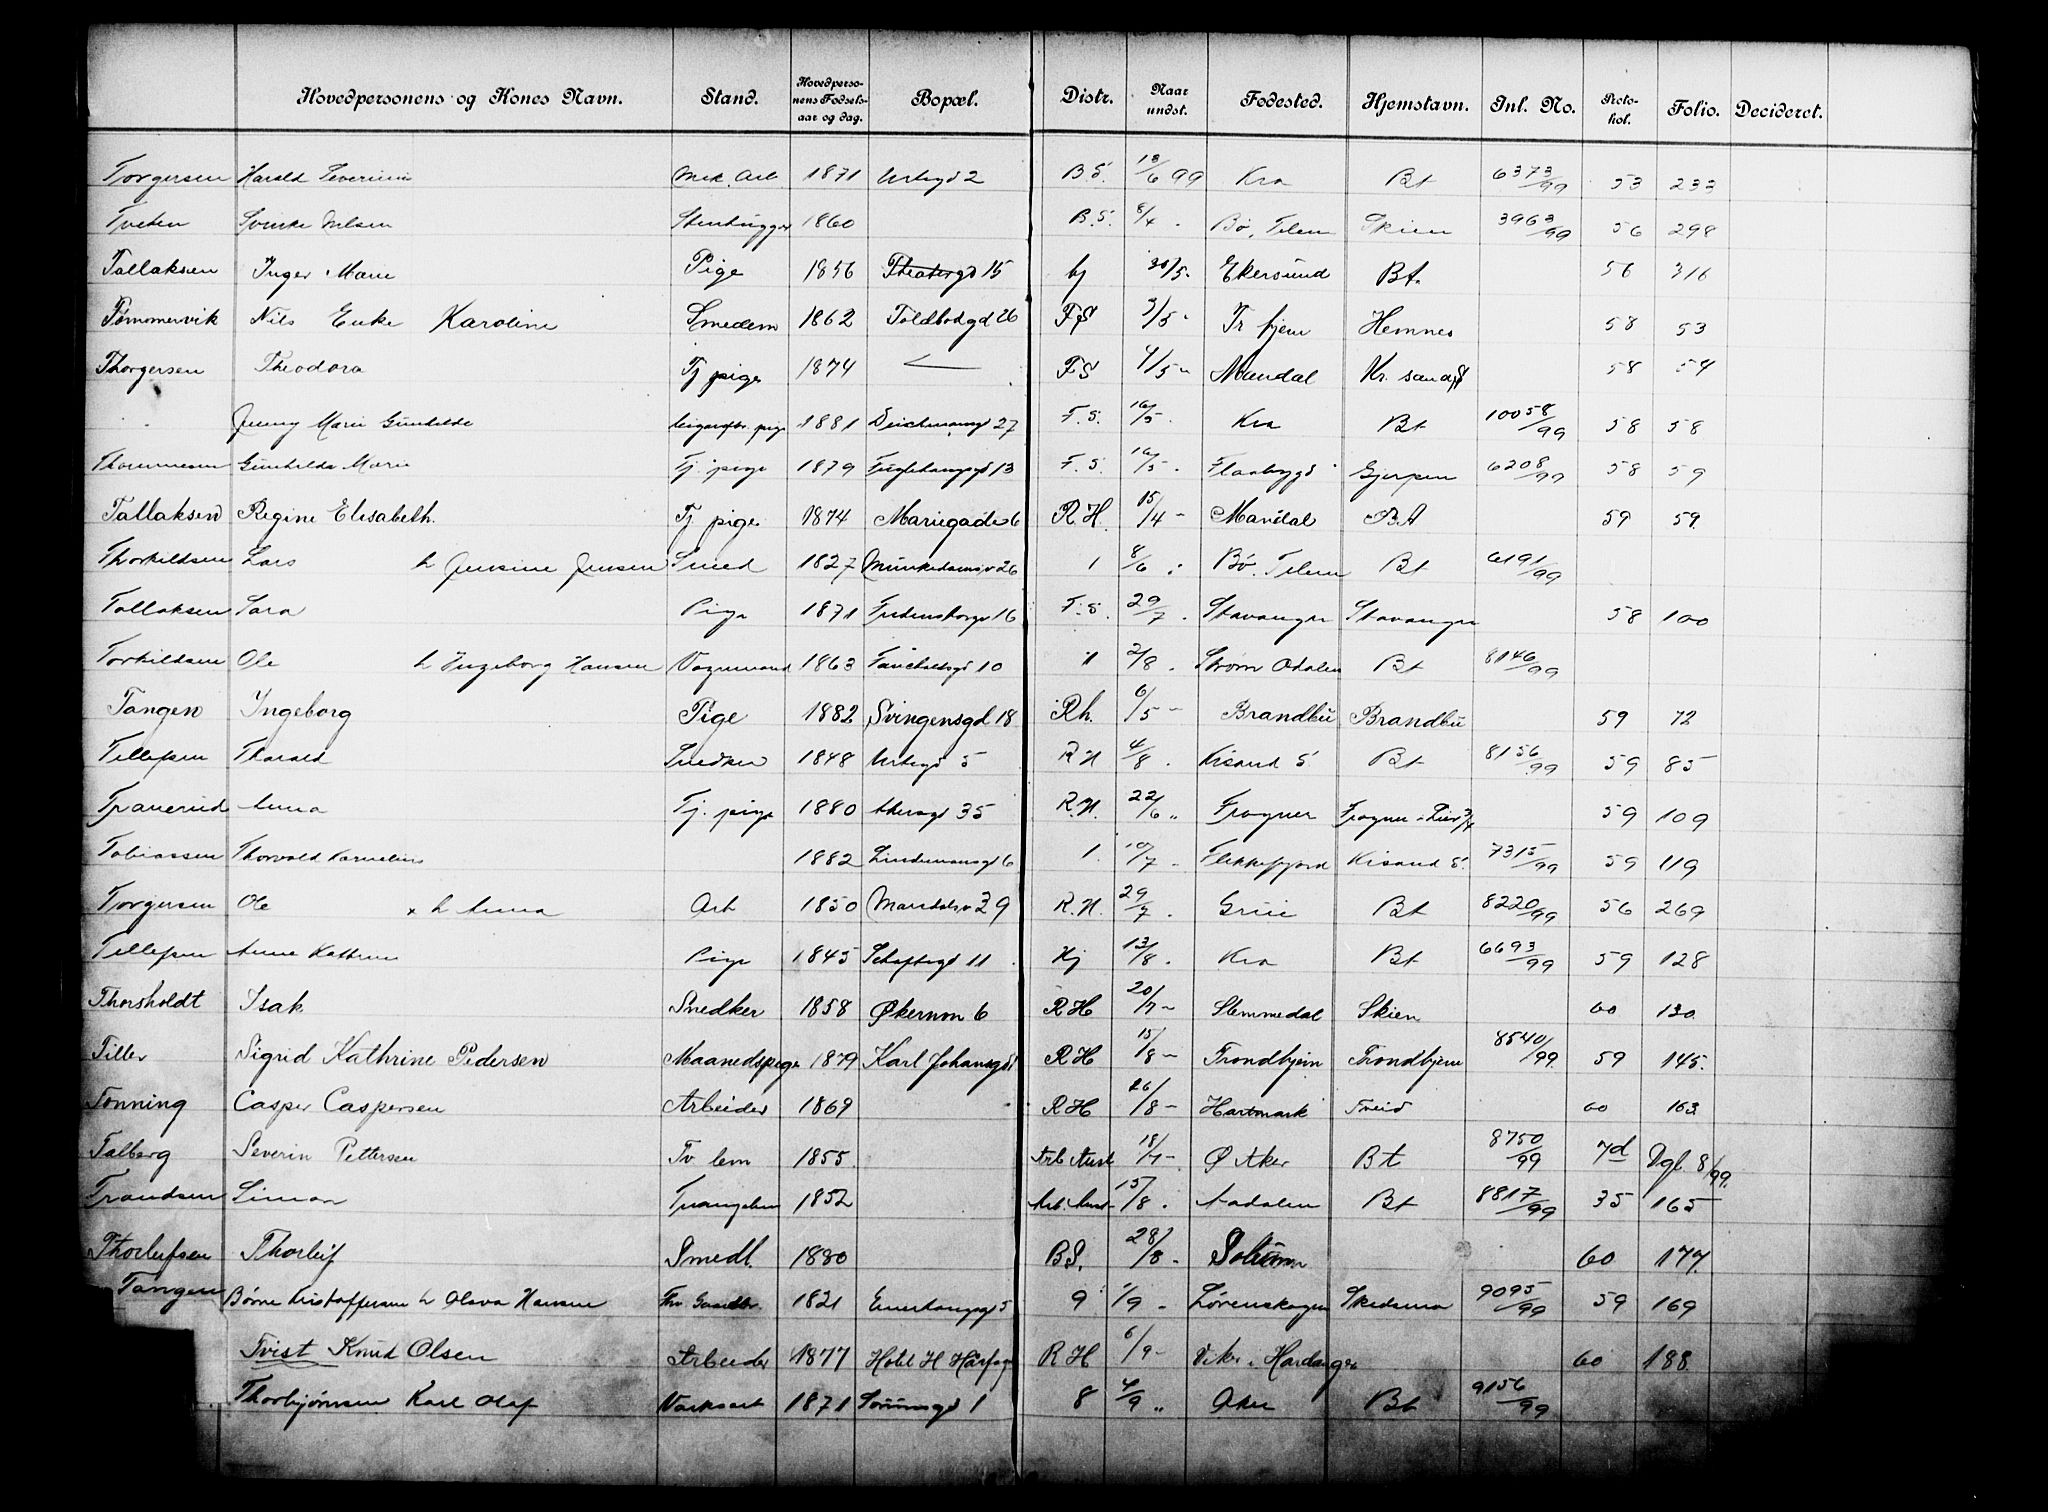 Hovedpersonens og Kones Navn. Stand. Hovedpersonens Fødselsaar og dag. Bopæl. Distr. Naar undst. Fødested. Hjemstavn. Inl. No. Protokol. Folio. Decideret.
Torgersen Harald Severin Mek. Arb 1871 Urtegd 2 B.S. 13/6 99 Kra Bt 6373/99 53 233
Tveten Nilsen Stenhugger 1860 B.S. 8/4 Bø, Telem Skien 3963/99 56 298
Tallaksen Inger Marie Pige 1856 Theatergd 15 hj 30/5 Ekersund Bt. 56 316
Tømmervik Nils Enke Karoline Smedem 1862 Toldbodgd 26 FS 3/5 Tr hjem Hemnes 58 53
Thorgersen Theodora Tj pige 1874 FS 4/5 Mandal Kr. sand S 58 54
Jenny Marie Gunhilde pige 1881 Deichmansgd 27 F.S. 16/5 Kra Bt 10058/99 58 58
Thommesen Gunhilda Marie Tj. pige 1879 Fuglehaugsgd 13 F.S. 16/5 Flaabygd Gjerpen 6208/99 58 59
Tallaksen Regine Elisabeth. Tj pige 1874 Mariegade 6 R.H. 15/4 Mandal Bt 59 59
Thorkildsen Lars h Jensine Jensen Smed 1827 Munkedamsv 26 1 8/6 Bø. Telem Bt 6191/99
Tallaksen Sara Pige 1871 Fredensborgv 16 F.S. 29/7 Stavanger Stavanger 58 100
Torkildsen Ole h Ingeborg Hansen Vognmand 1863 10 11 2/8 Strøm Odalen Bt 8146/99
Tangen Ingeborg Pige 1882 Svingensgd 18 Rh. 6/5 Brandbu Brandbu 59 72
Tellefsen Tharald Snedker 1848 Urtegd 5 R H 4/8 Krsand S Bt 8156/99 59 85
Tranerud Anna Tj. pige 1880 Akersgd 35 R.H. 22/6 Frogner Frogner i Lier 3/4 59 109
Tobiassen Thorvald Kornelius 1882 Lindemansgd 6 1. 10/7 Flekkefjord Krsand S. 7315/99 59 119
Torgersen Ole x h Anna Arb 1850 Maridalsv 39 R.H. 29/7 Grue Bt 8220/99 56 269
Tellefsen Anne Kathrine Pige 1845 Schaftegd 11 Hj 13/8 Kra Bt 6693/99 59 128
Thorsholdt Isak Snedker 1858 Økernvn 6 R H 20/7 Slemmedal Skien 60 130
Tiller Sigrid Kathrine Pedersen Maanedspige 1879 Karl Johansgd R H 15/8 Trondhjem Trondhjem 8540/99 59 145.
Tønning Casper Caspersen Arbeider 1869 R H 26/8 Hartmark 60 163
Talberg Severin Pettersen Tv lem 1855 Arb Anst 18/7 Ø Aker Bt 8750/99 7d Dgl 8/99.
Trondsen Simon Tvangslem 1852 Arb. Anst 15/8 Aadalen Bt 8817/99 35 165
Thorleifsen Thorleif Smedl. 1880 B S. 28/8 Solum 60 177.
Tangen Børre Kristoffersen h Olava Hansen 1821 5 9 1/9 Lørenskogen Skedsmo 9095/99 59 169
Tvist Knud Olsen Arbeider 1877 Hotel H Hårfag R H 6/9 Viker i Hardanger 60 188
Thorbjørnsen Karl Olaf Værksarb 1871 Sørumsgd 1 8 4/9 Aker Bt 9156/99